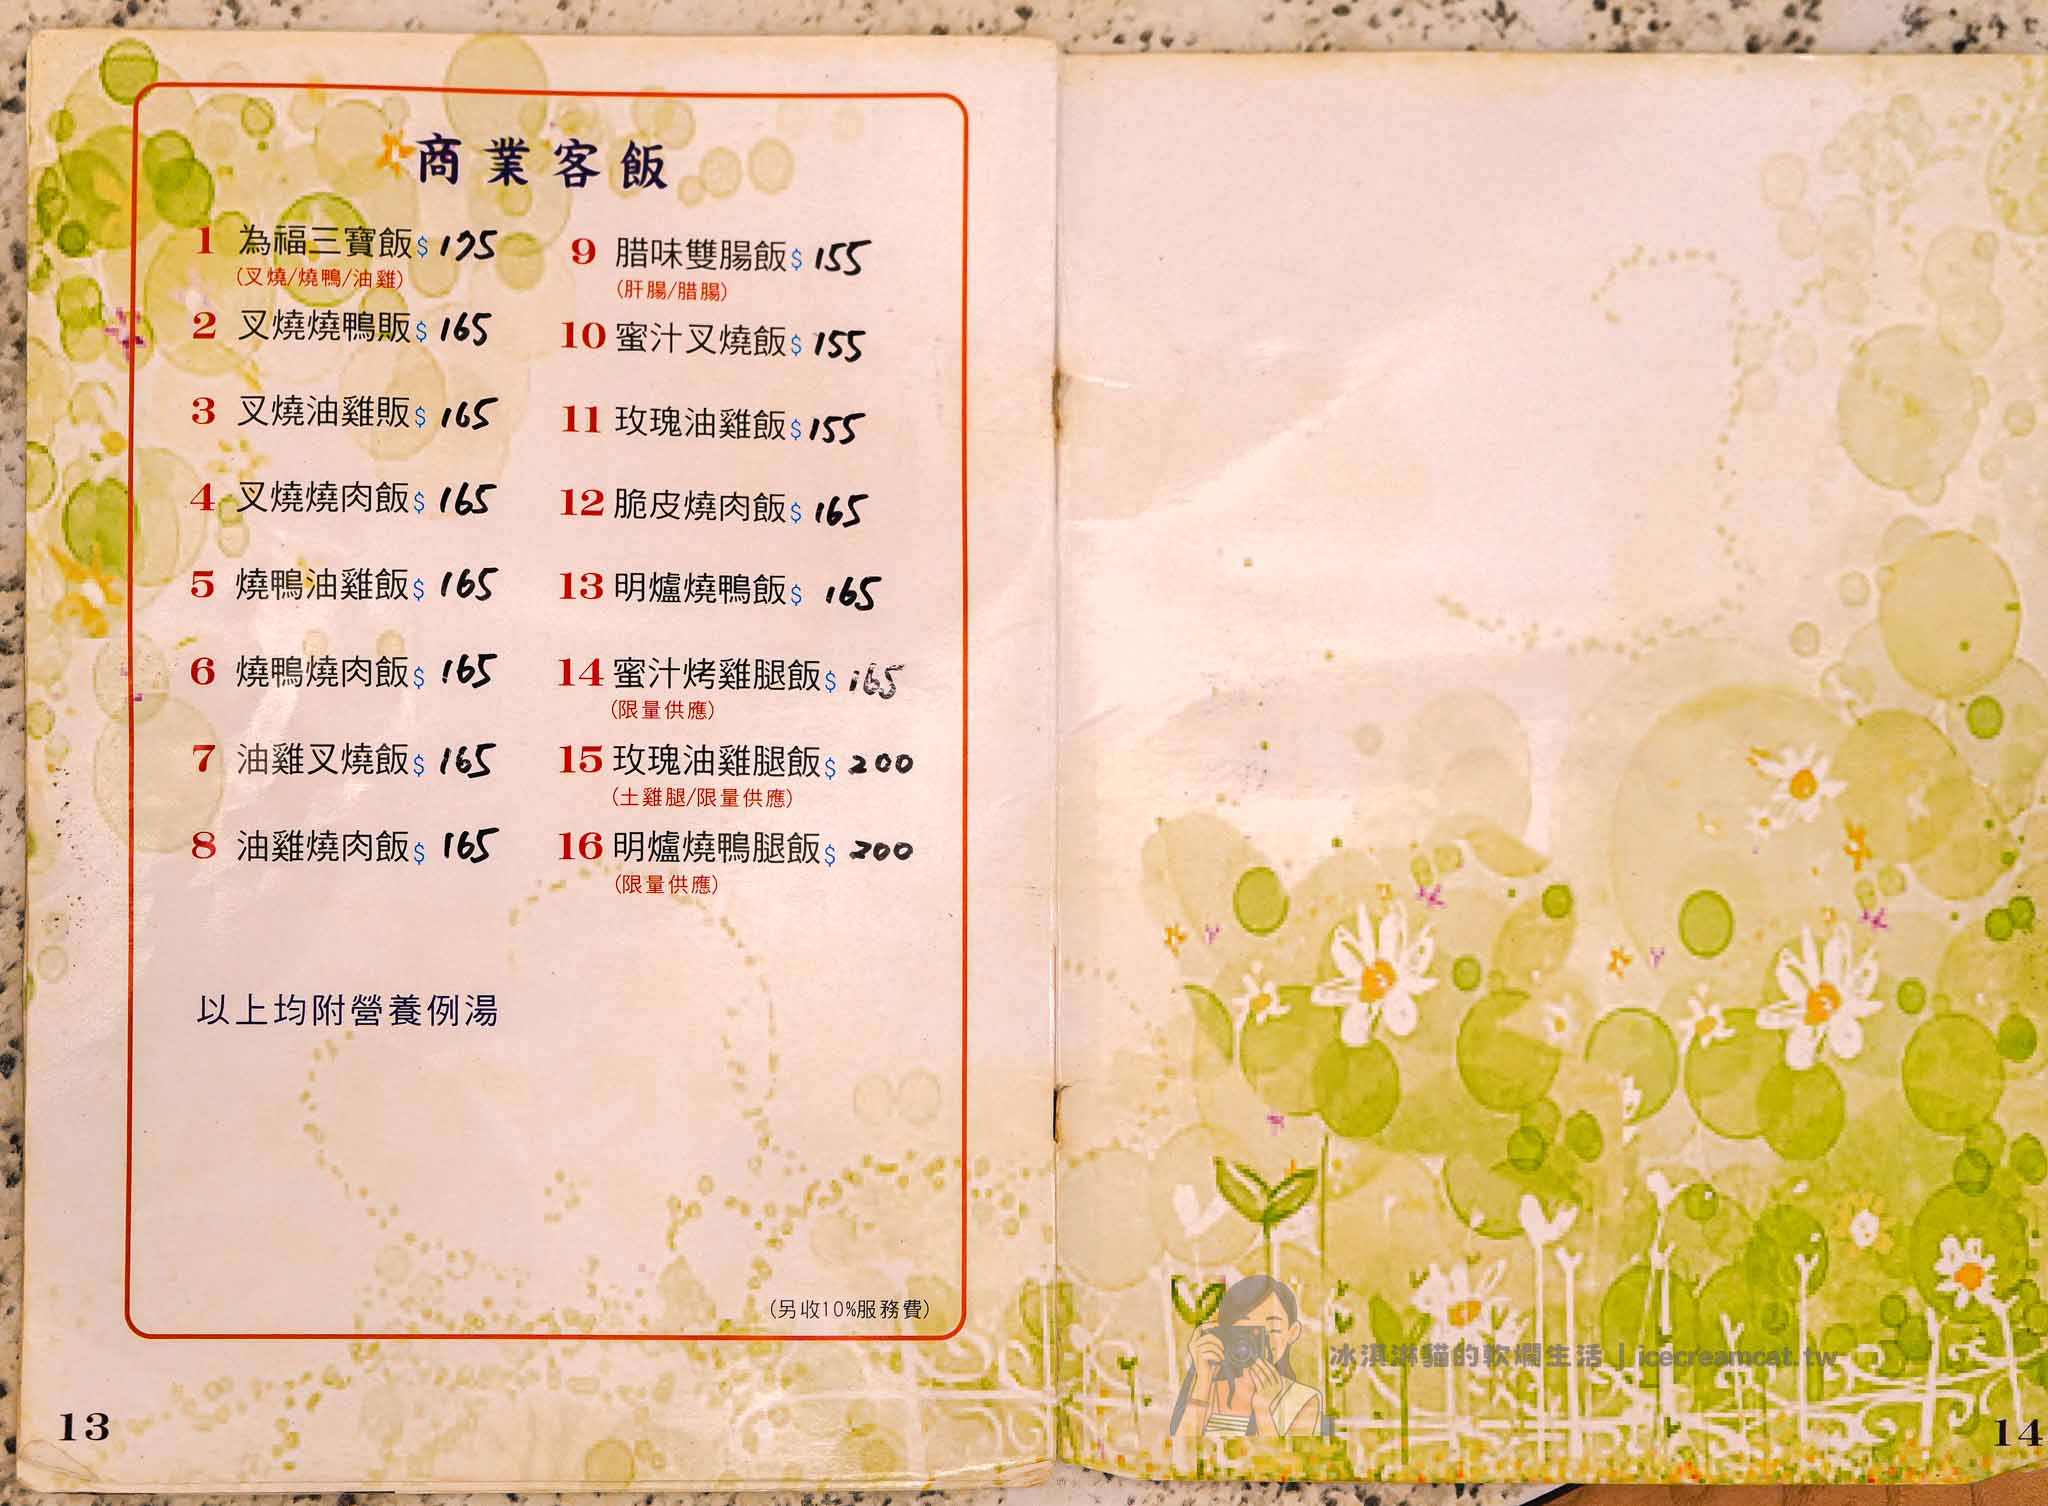 商業客飯
1 為福三寶飯$ 175
(叉燒/燒鴨/油雞)
2 叉燒燒鴨販$ 165
3 叉燒油雞販$ 165
4 叉燒燒肉飯$ 165
5 燒鴨油雞飯$ 165
6 燒鴨燒肉飯$ 165
7 油雞叉燒飯$ 165
8 油雞燒肉飯$ 165
9 腊味雙腸飯$ 155
(肝腸/腊腸)
10 蜜汁叉燒飯$ 155
11 玫瑰油雞飯$ 155
12 脆皮燒肉飯$ 165
13 明爐燒鴨飯$ 165
14 蜜汁烤雞腿飯$ 165
(限量供應)
15 玫瑰油雞腿飯$ 200
(土雞腿/限量供應)
16 明爐燒鴨腿飯$ 200
(限量供應)
以上均附營養例湯
(另收10%服務費)
13
冰淇淋貓的軟爛生活 | icecreamcat.tw
14